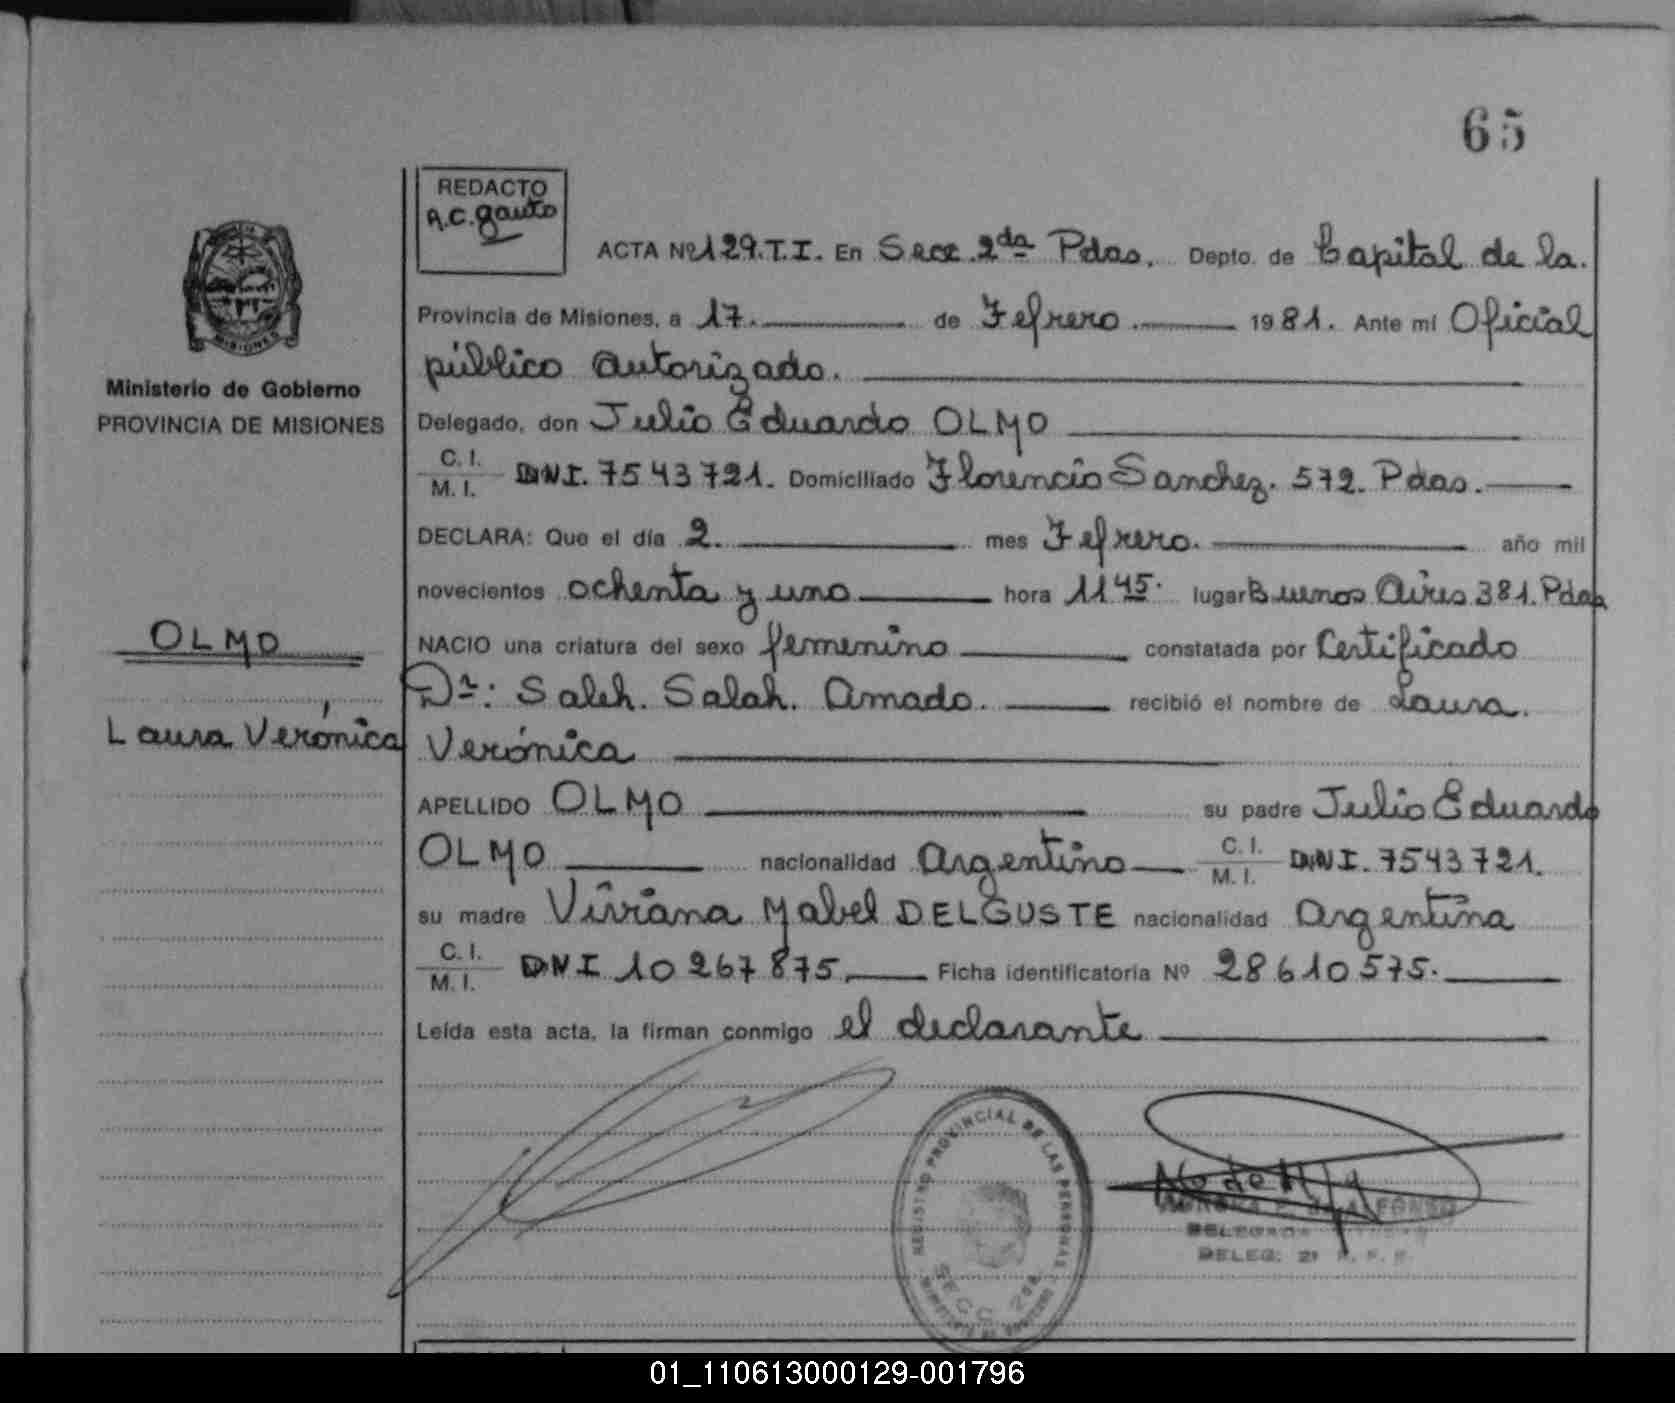 65
REDACTO
A.C. Gauto
ACTA Nº 129.T.I. En Secc. 2da Pdas. Depto. de Capital de la.
Provincia de Misiones, a 17. de Fefrero. 1981. Ante mí Oficial
público autorizado.
Ministerio de Gobierno
PROVINCIA DE MISIONES
MISIONES
Delegado, don Julio Eduardo OLMO
C. I.
M. I. DNI. 7543721. Domiciliado Florencio Sanchez. 572. Pdas.
DECLARA: Que el día 2. mes Fefrero. año mil
novecientos ochenta y uno hora 11 45. lugar Buenos Aires 381. Pdas
OLMO
NACIO una criatura del sexo femenino constatada por Certificado
Dr: Saleh. Salah. Amado. recibió el nombre de Laura.
Laura Verónica
Verónica
APELLIDO OLMO su padre Julio Eduardo
OLMO nacionalidad Argentino C. I.
M. I. DNI. 7543721.
su madre Viviana Mabel DELGUSTE nacionalidad Argentina
C. I.
M. I. DNI 10267875. Ficha identificatoria Nº 28610575.
Leída esta acta, la firman conmigo el declarante
REGISTRO PROVINCIAL DE LAS PERSONAS
SECC. 2da.
ALFONSO
DELEGADA
DELEG. 2ª
01_110613000129-001796